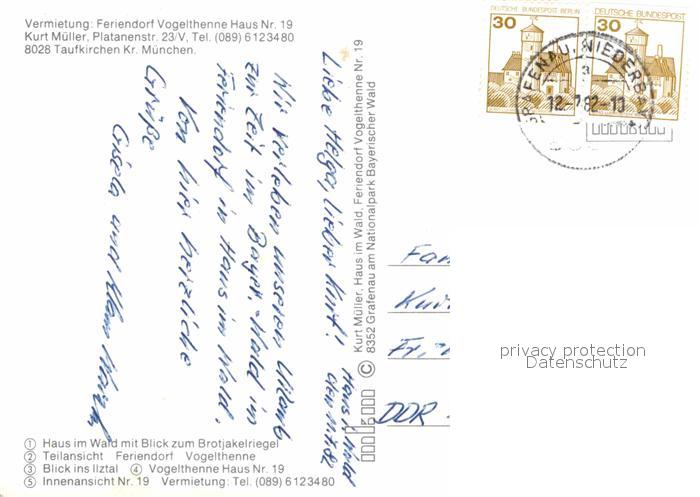 Vermietung: Feriendorf Vogelthenne Haus Nr. 19
Kurt Müller, Platanenstr. 23/V, Tel. (089) 6123480
8028 Taufkirchen Kr. München.
DEUTSCHE BUNDESPOST BERLIN
30
DEUTSCHE BUNDESPOST
30
GRAFENAU, NIEDERBAY
12.-7.82-10
Haus i. Wald
den 11.7.82
Liebe Helga, lieber Kurt!
Wir verleben unseren Urlaub
zur Zeit im Bayer. Wald im
Feriendorf in Haus im Wald.
Von hier herzliche
Grüße
Gisela und Klaus
Kurt Müller, Haus im Wald, Feriendorf Vogelthenne Nr. 19
8352 Grafenau am Nationalpark Bayerischer Wald
Fam
Kur
DDR
privacy protection
Datenschutz
① Haus im Wald mit Blick zum Brotjakelriegel
② Teilansicht Feriendorf Vogelthenne
③ Blick ins Ilztal ④ Vogelthenne Haus Nr. 19
⑤ Innenansicht Nr. 19 Vermietung: Tel. (089) 6123480